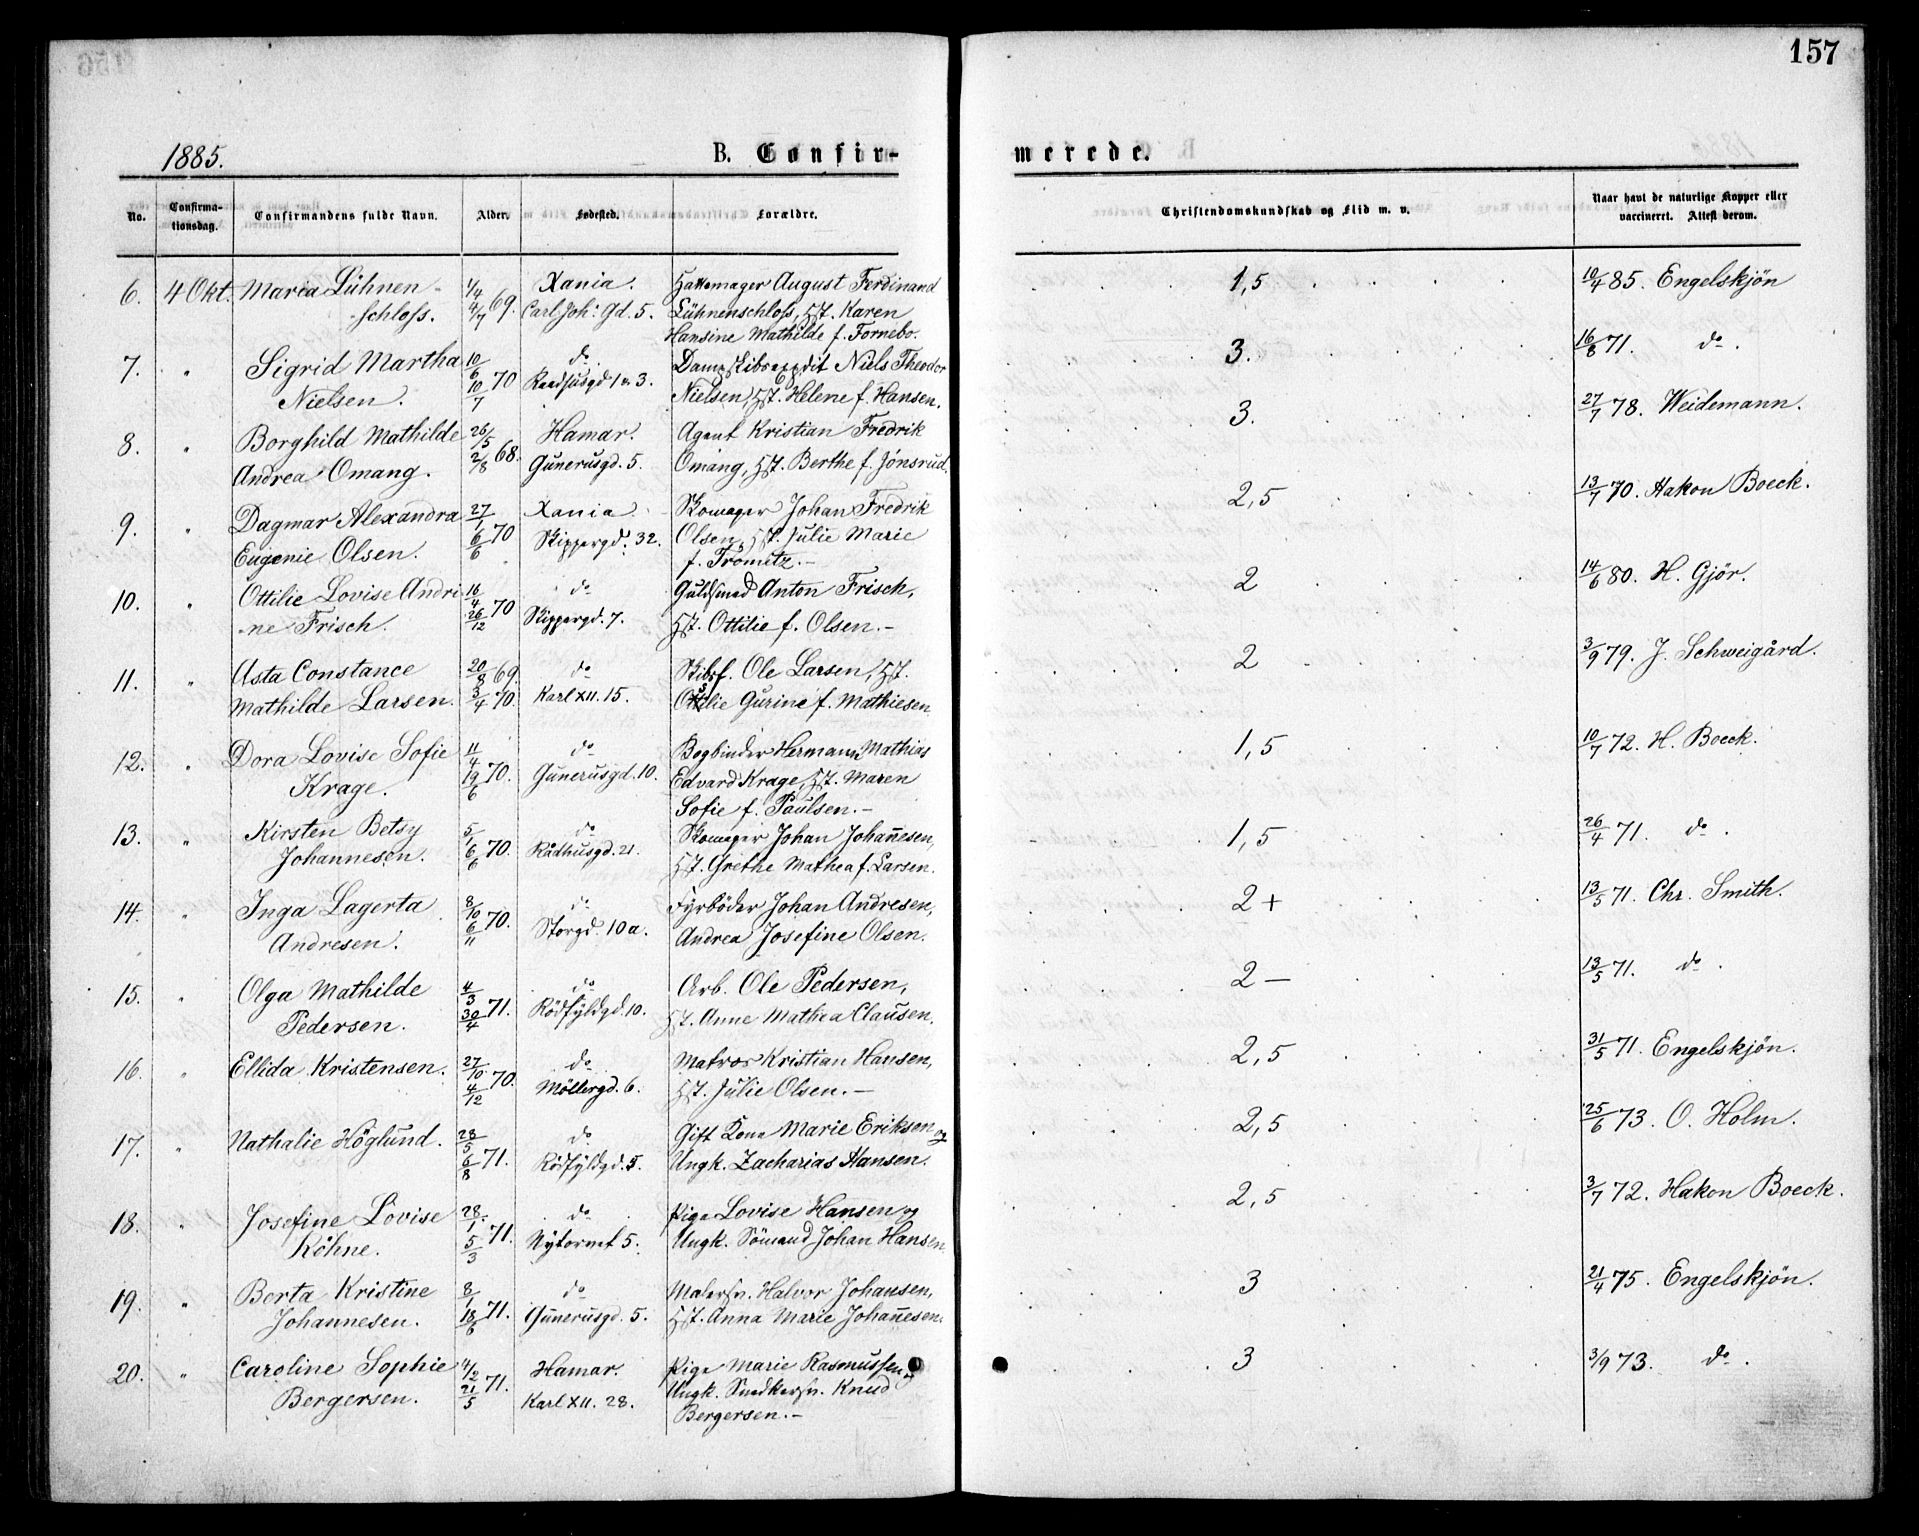 157
1885.
B. Confir-
merede.
No.
Confirma-
tionsdag.
Confirmandens fulde Navn.
Alder.
Fødested.
Forældre.
Christendomskundskab og Flid m. v.
Naar havt de naturlige Kopper eller
vaccineret. Attest derom.
6. 4 Okt. Maria Lühnen-
schloss.
1/4 4/7 69.
Xania.
Carl Joh: Gd. 5.
Hattemager August Ferdinand
Lühnenschloss, Hst. Karen
Hansine Mathilde f. Fornebo.
1,5
10/4 85. Engelskjön
7. " Sigrid Martha
Nielsen.
10/6 10/7 70
do
Raadhusgd 1 v. 3.
Dampskibsexpdit Niels Theodor
Nielsen, Hst. Helene f. Hansen.
3.
16/8 71. do.
8. " Borghild Mathilde
Andrea Omang.
26/5 2/8 68.
Hamar.
Gunerusgd. 5.
Agent Kristian Fredrik
Omang, Hst. Berthe f. Jönsrud.
3.
27/7 78. Weidemann.
9. " Dagmar Alexandra
Eugenie Olsen.
27/1 6/6 70
Xania
Skippergd. 32.
Skomager Johan Fredrik
Olsen, Hst. Julie Marie
f. Trömitz.-
2,5
13/7 70. Hakon Boeck.
10. " Ottilie Lovise Andri
-ne Frisch.
16/4 26/12 70
do
Skippergd. 7.
Guldsmed Anton Frisch,
Hst. Ottilie f. Olsen.-
2
14/6 80. H. Gjör.
11. " Asta Constance
Mathilde Larsen.
20/8 69.
3/4 70.
do
Karl XII. 15.
Skibsf. Ole Larsen, Hst.
Gurine f. Mathiesen
2
3/9 79. J. Schweigård.
12. " Dora Lovise Sofie
Krage.
11/4 19/6 70.
do
Gunerusgd. 10.
Bogbinder Hermann Mathias
Edvard Krage, Hst. Maren
Sofie f. Paulsen.-
1,5
10/7 72. H. Boeck.
13. " Kirsten Betsy
Johannesen.
5/1 6/6 70.
do
Rådhusgd. 21.
Skomager Johan Johan̄esen,
Hst. Grethe Mathea f. Larsen.
1,5
26/4 71. do.
14. " Inga Lagerta
Andresen.
8/10 6/11 70.
do
Storgd. 10a.
Fyrböder Johan Andresen,
Andrea Josefine Olsen.
2+
13/5 71. Chr. Smith.
15. " Olga Mathilde
Pedersen.
4/3 30/4 71.
do
Rödfyldgd. 10.
Arb. Ole Pedersen,
Hst. Anne Mathea Clausen.
2-
13/5 71. do.
16. " Ellida Kristensen.
27/10 4/12 70.
do
Möllergd. 6.
Matros Kristian Hansen,
Hst. Julie Olsen.-
2,5
31/5 71. Engelskjön.
17. " Nathalie Höglund.
28/5 6/8 71.
do
Rödfyldgd. 5.
Gift Kone Marie Eriksen og
Ungk. Zacharias Hansen.
2,5
25/6 73. O. Holm.
18. " Josefine Lovise
Köhne.
28/1 5/3 71.
do
Nytorvet 5.
Pige Lovise Hansen og
Ungk. Sömand Johan Hansen
2,5
3/7 72. Hakon Boeck.
19. " Berta Kristine
Johannesen.
8/1 18/6 71.
do
Gunerusgd. 5.
Malersv. Halvor Johansen,
Hst. Anna Marie Johan̄esen.
3
21/4 75. Engelskjön.
20. " Caroline Sophie
Bergersen.
4/2 21/5 71.
Hamar.
Karl XII. 28.
Pige Marie Rasmussen og
Ungk. Snedkersv. Knud
Bergersen.-
3
3/9 73. do.